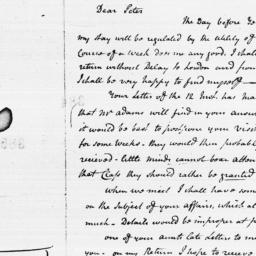 Dear Peter
The Day before
my stay will be regulated by the utility of
Course of a week does me any good. I shall
return without Delay to London and from
I shall be very happy to find myself
Your Letter of the 12 Inst. has
that Mr Adams will find in your answer
it would be best to postpone your Visit
for some weeks. they would then probably
recieved - little minds cannot bear attent
that Class they should rather be granted
when we meet I shall have some
on the Subject of your affairs, which at
much. Details would be improper at
one of your aunts late Letters to me
you - on my Return I hope to recieve